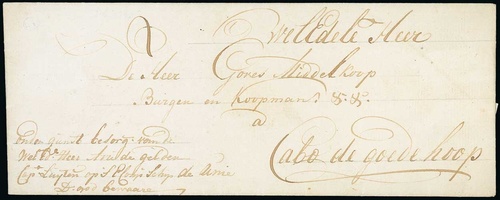 WelEdele Heer
De Heer Gores Middelkoop
Burger en Koopman &. &.
a
Cabo de goede hoop
onder gunst besorg van de
Wel Ed. Heer
Cap. Luÿten op 't E Comp Schip de Unie
D. god bewaare